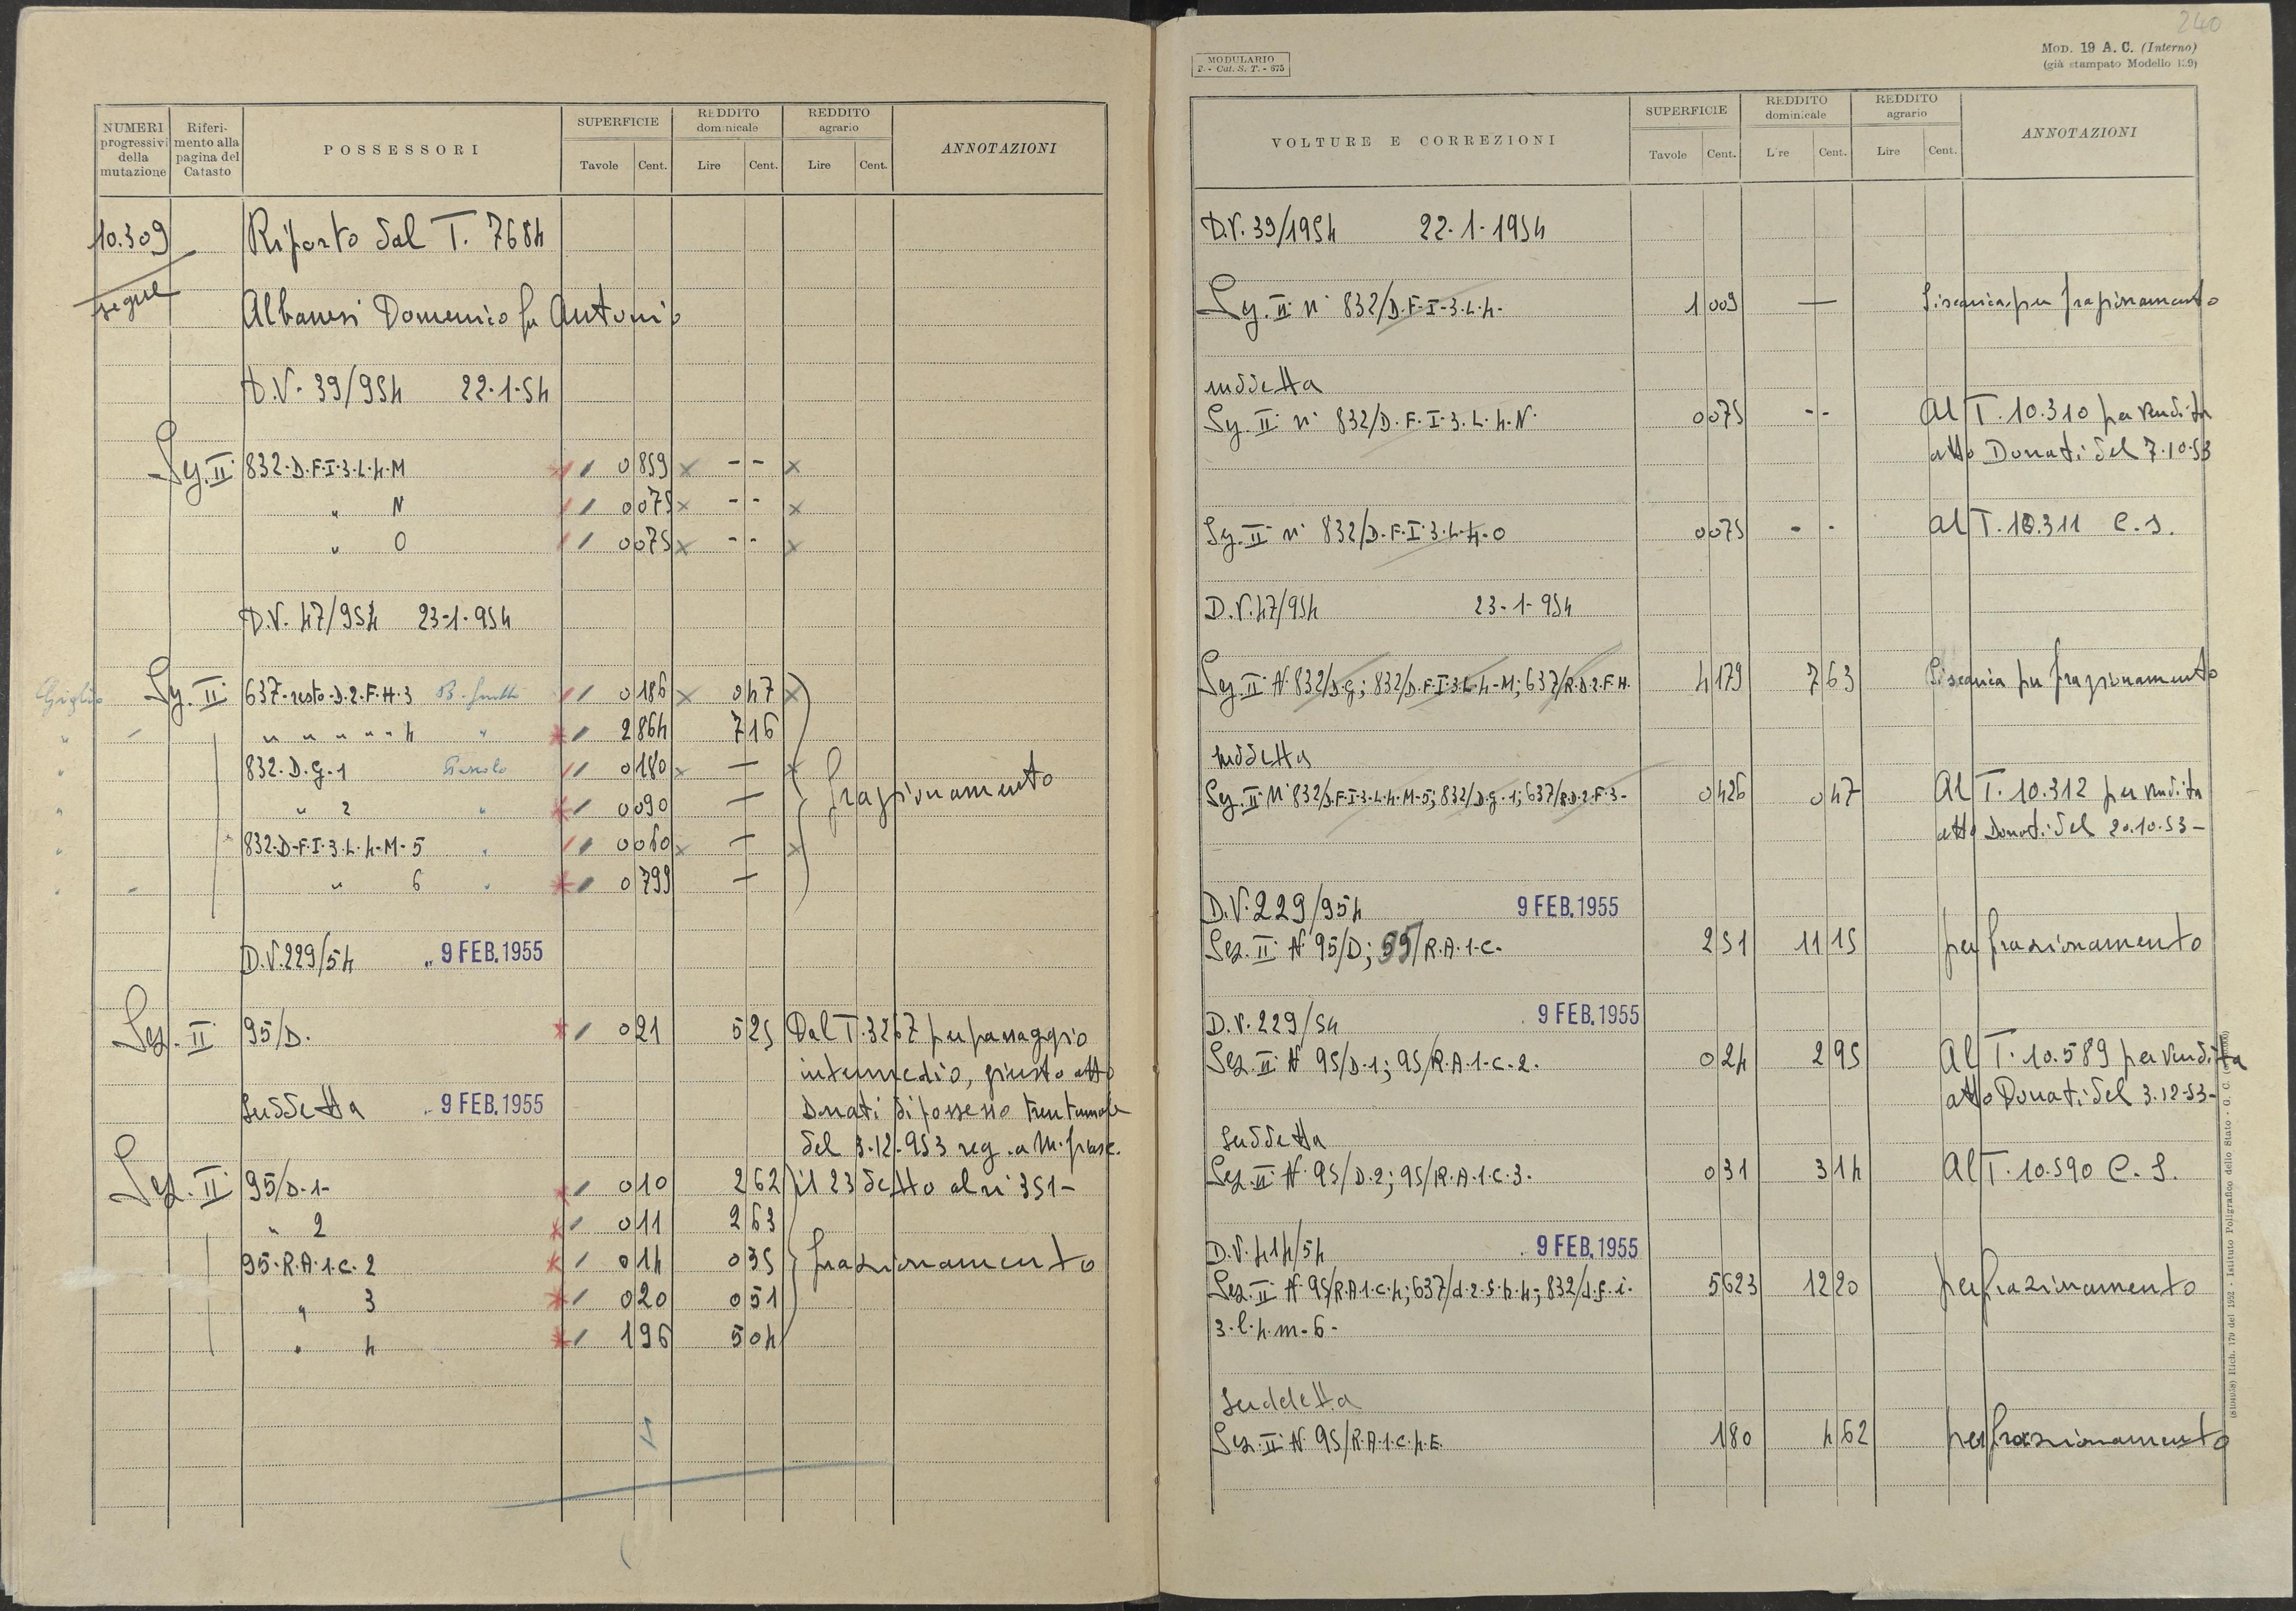 NUMERI progressivi della mutazione
Riferimento alla pagina del Catasto
POSSESSORI
SUPERFICIE
Tavole Cent.
REDDITO dominicale
Lire Cent.
REDDITO agrario
Lire Cent.
ANNOTAZIONI
10.309 Riporto dal T. 7684
segue
Albanesi Domenico fu Antonio
D.V. 39/954 22-1-54
Sez. II 832-D.F-I-3-L-4-M 0 859 --
" N 0 075 --
" O 0 075 --
D.V. 47/954 23-1-954
Giglio Sez. II 637-resto-D-2-F-H-3 0 186 0 47
" " " " " 4 " 2 864 7 16
832-D.G.1 0 180 —
" 2 " 0 090 —
frazionamento
832-D-F-I-3-L-4-M-5 " 0 060 —
" 6 " 0 799 —
D.V. 229/54 9 FEB. 1955
Sez. II 95/D. 0 21 5 25 Dal T. 3267 per passaggio
intermedio, giusto atto
Suddetta 9 FEB. 1955 Donati di possesso trentennale
del 3-12-953 reg. a M. frasc.
Sez. II 95/D-1- 0 10 2 62 il 23 detto al n° 351-
" 2 0 11 2 63
95-R.A-1-C-2 0 14 0 35 frazionamento
" 3 0 20 0 51
" 4 1 96 5 04
240
MODULARIO
F. - Cat. S. T. - 675
MOD. 19 A. C. (Interno)
(già stampato Modello 129)
VOLTURE E CORREZIONI
SUPERFICIE
Tavole Cent.
REDDITO dominicale
Lire Cent.
REDDITO agrario
Lire Cent.
ANNOTAZIONI
D.V. 39/1954 22-1-1954
Sez. II n° 832/D-F-I-3-L-4- 1 009 — Discarica per frazionamento
suddetta
Sez. II n° 832/D-F-I-3-L-4-N- 0 075 -- Al T. 10.310 per vendita
atto Donati del 7-10-53
Sez. II n° 832/D-F-I-3-L-4-O 0 075 -- al T. 10.311 C.S.
D.V. 47/954 23-1-954
Sez. II N 832/D-G; 832/D-F-I-3-L-4-M; 637/R-D-2-F-H. 4 179 7 63 Discarica per frazionamento
suddetta
Sez. II N° 832/D-F-I-3-L-4-M-5; 832/D-G-1; 637/R-D-2-F-3- 0 426 0 47 Al T. 10.312 per vendita
atto Donati del 20.10.53-
D.V. 229/954 9 FEB. 1955
Sez. II N 95/D; 95/R.A-1-C- 2 51 11 15 per frazionamento
D.V. 229/54 9 FEB. 1955
Sez. II N 95/D-1; 95/R.A-1-C-2. 0 24 2 95 Al T. 10.589 per vendita
atto Donati del 3-12-53-
Suddetta
Sez. II N 95/D-2; 95/R.A-1-C-3. 0 31 3 14 Al T. 10.590 C.S.
D.V. 414/54 9 FEB. 1955
Sez. II N 95/R.A-1-C-4; 637/d-2-f-h-4; 832/d-f-i- 5 623 12 20 per frazionamento
3-l-4-m-6-
Suddetta
Sez. II N 95/R.A-1-C-4-E. 1 80 4 62 per frazionamento
Rich. 179 del 1952 - Istituto Poligrafico dello Stato - G. C.